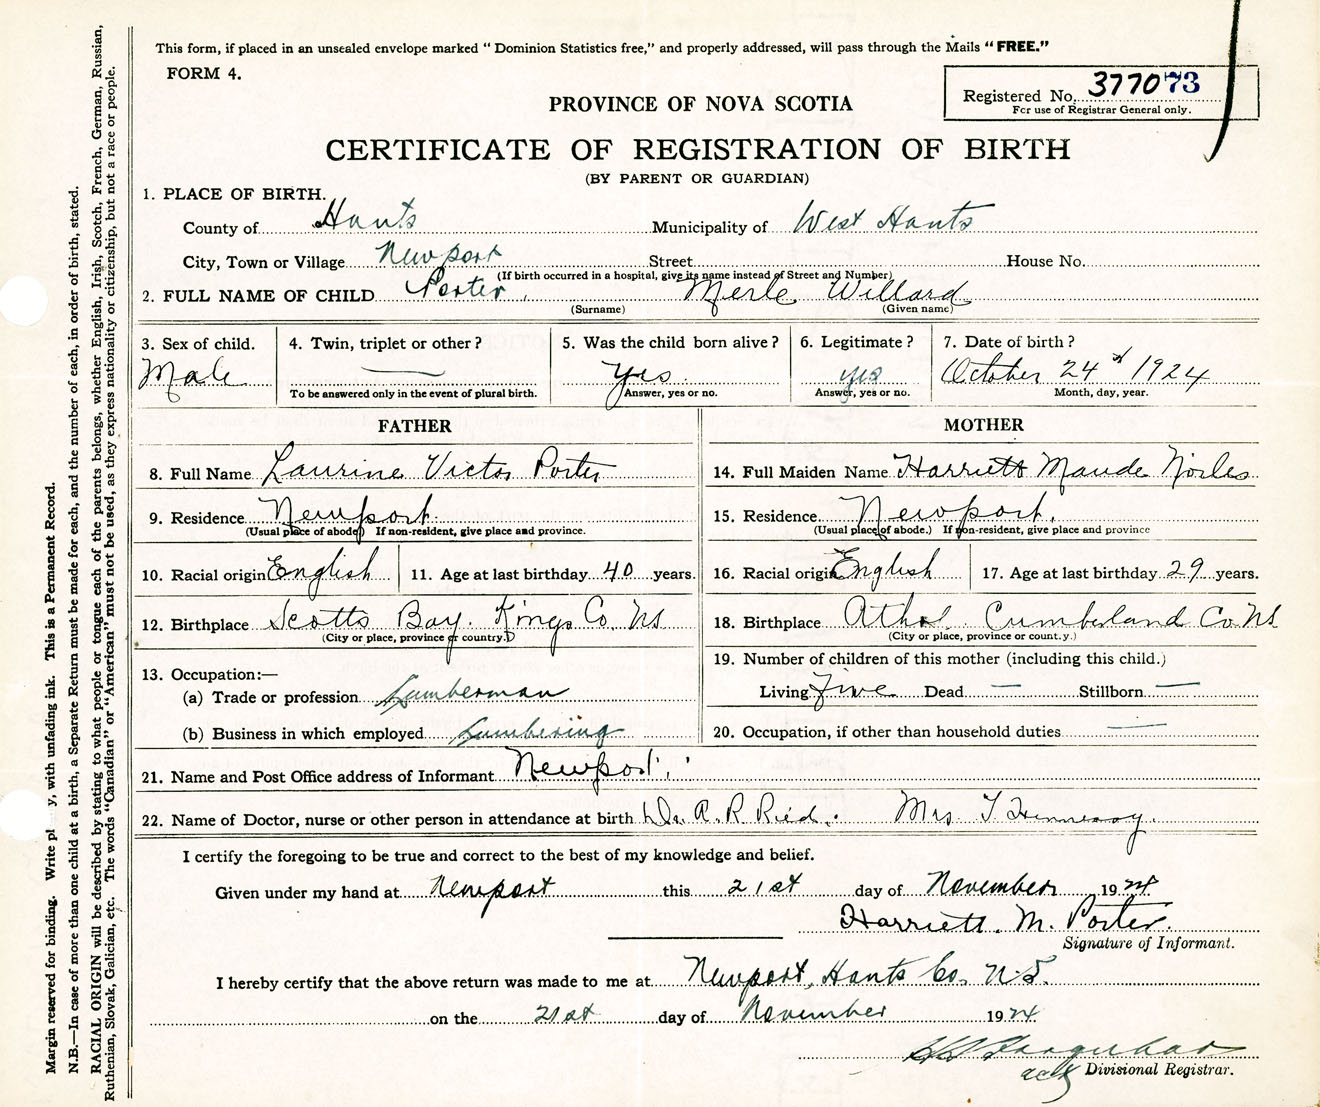 This form, if placed in an unsealed envelope marked " Dominion Statistics free," and properly addressed, will pass through the Mails "FREE."
FORM 4.
Registered No. 377073
For use of Registrar General only.
PROVINCE OF NOVA SCOTIA
CERTIFICATE OF REGISTRATION OF BIRTH
(BY PARENT OR GUARDIAN)
1. PLACE OF BIRTH.
County of Hants Municipality of West Hants
City, Town or Village Newport Street House No.
(If birth occurred in a hospital, give its name instead of Street and Number)
2. FULL NAME OF CHILD Porter, Merle Willard
(Surname) (Given name)
3. Sex of child. 4. Twin, triplet or other? 5. Was the child born alive? 6. Legitimate? 7. Date of birth?
Male — yes yes October 24th 1924
To be answered only in the event of plural birth. Answer, yes or no. Answer, yes or no. Month, day, year.
FATHER MOTHER
8. Full Name Laurine Victor Porter 14. Full Maiden Name Harriett Maude
9. Residence Newport. 15. Residence Newport.
(Usual place of abode) If non-resident, give place and province. (Usual place of abode.) If non-resident, give place and province
10. Racial origin English 11. Age at last birthday 40 years. 16. Racial origin English 17. Age at last birthday 29 years.
12. Birthplace Scotts Bay. Kings Co. NS 18. Birthplace Athol. Cumberland Co. NS
(City or place, province or country.) (City or place, province or count.y.)
13. Occupation:— 19. Number of children of this mother (including this child.)
(a) Trade or profession Lumberman Living Five Dead — Stillborn —
(b) Business in which employed Lumbering 20. Occupation, if other than household duties —
21. Name and Post Office address of Informant Newport.
22. Name of Doctor, nurse or other person in attendance at birth Dr. A. R. Reid. Mrs T. Hennessy.
I certify the foregoing to be true and correct to the best of my knowledge and belief.
Given under my hand at Newport this 21st day of November 1924
Harriett. M. Porter.
Signature of Informant.
I hereby certify that the above return was made to me at Newport, Hants Co. N.S.
on the 21st day of November 1924
actg Divisional Registrar.
Margin reserved for binding. Write pl y, with unfading ink. This is a Permanent Record.
N.B.—In case of more than one child at a birth, a Separate Return must be made for each, and the number of each, in order of birth, stated.
RACIAL ORIGIN will be described by stating to what people or tongue each of the parents belongs, whether English, Irish, Scotch, French, German, Russian,
Ruthenian, Slovak, Galician, etc. The words "Canadian" or "American" must not be used, as they express nationality or citizenship, but not a race or people.